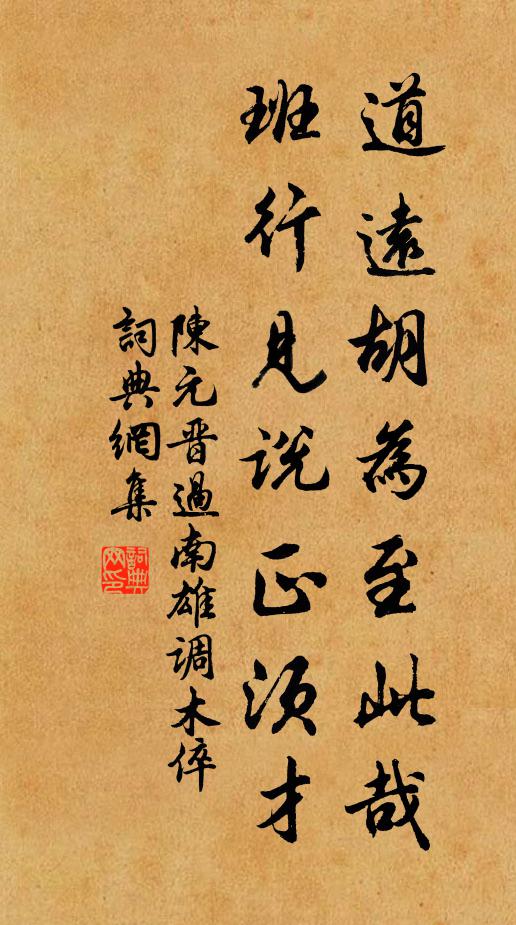 道遠胡為至此哉
班行見説正須才
陳元晋過南雄調木倅
詞典網集
詞典
网印